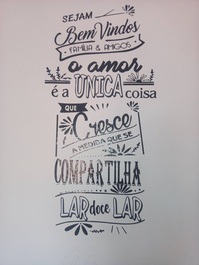 SEJAM
Bem Vindos
FAMÍLIA & AMIGOS
o amor
é a ÚNICA coisa
QUE
Cresce
A MEDIDA QUE SE
COMPARTILHA
LAR doce LAR